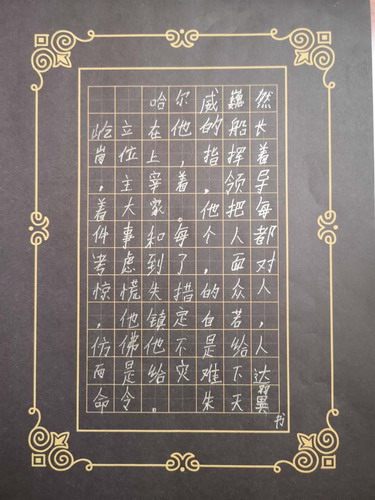 哈尔威巍然
屹立在他的船长
岗位上，指挥着
，主宰着，领导
着大家。他把每
件事和每个人都
考虑到了，面对
惊慌失措的众人
，他镇定自若，
仿佛他不是给人
而是给灾难下达
命令。 朱天翼
书